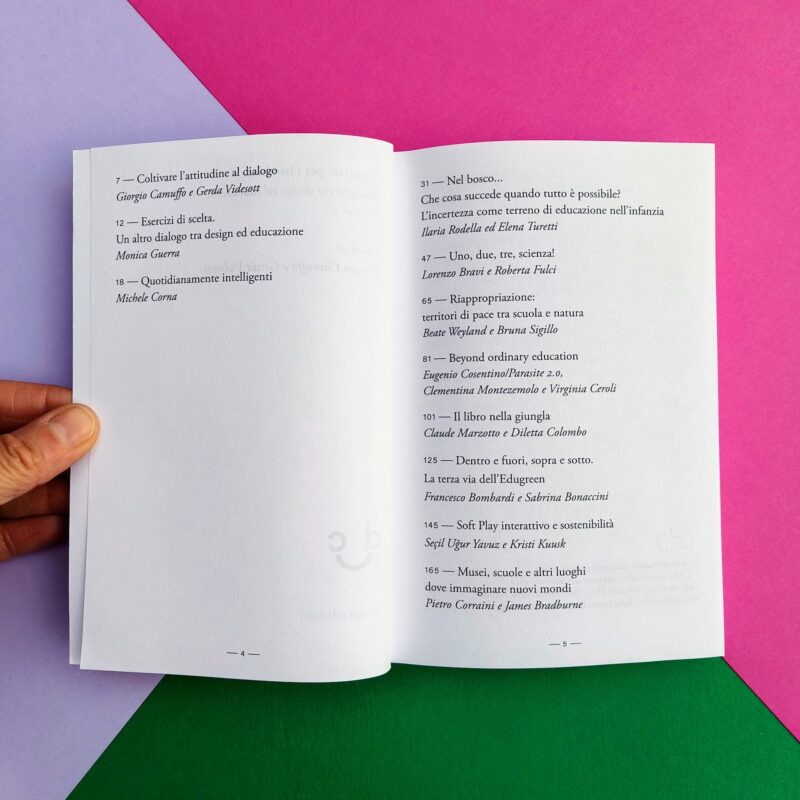 7 — Coltivare l'attitudine al dialogo
Giorgio Camuffo e Gerda Videsott
12 — Esercizi di scelta.
Un altro dialogo tra design ed educazione
Monica Guerra
18 — Quotidianamente intelligenti
Michele Corna
— 4 —
31 — Nel bosco...
Che cosa succede quando tutto è possibile?
L'incertezza come terreno di educazione nell'infanzia
Ilaria Rodella ed Elena Turetti
47 — Uno, due, tre, scienza!
Lorenzo Bravi e Roberta Fulci
65 — Riappropriazione:
territori di pace tra scuola e natura
Beate Weyland e Bruna Sigillo
81 — Beyond ordinary education
Eugenio Cosentino/Parasite 2.0,
Clementina Montezemolo e Virginia Ceroli
101 — Il libro nella giungla
Claude Marzotto e Diletta Colombo
125 — Dentro e fuori, sopra e sotto.
La terza via dell'Edugreen
Francesco Bombardi e Sabrina Bonaccini
145 — Soft Play interattivo e sostenibilità
Seçil Uğur Yavuz e Kristi Kuusk
165 — Musei, scuole e altri luoghi
dove immaginare nuovi mondi
Pietro Corraini e James Bradburne
— 5 —